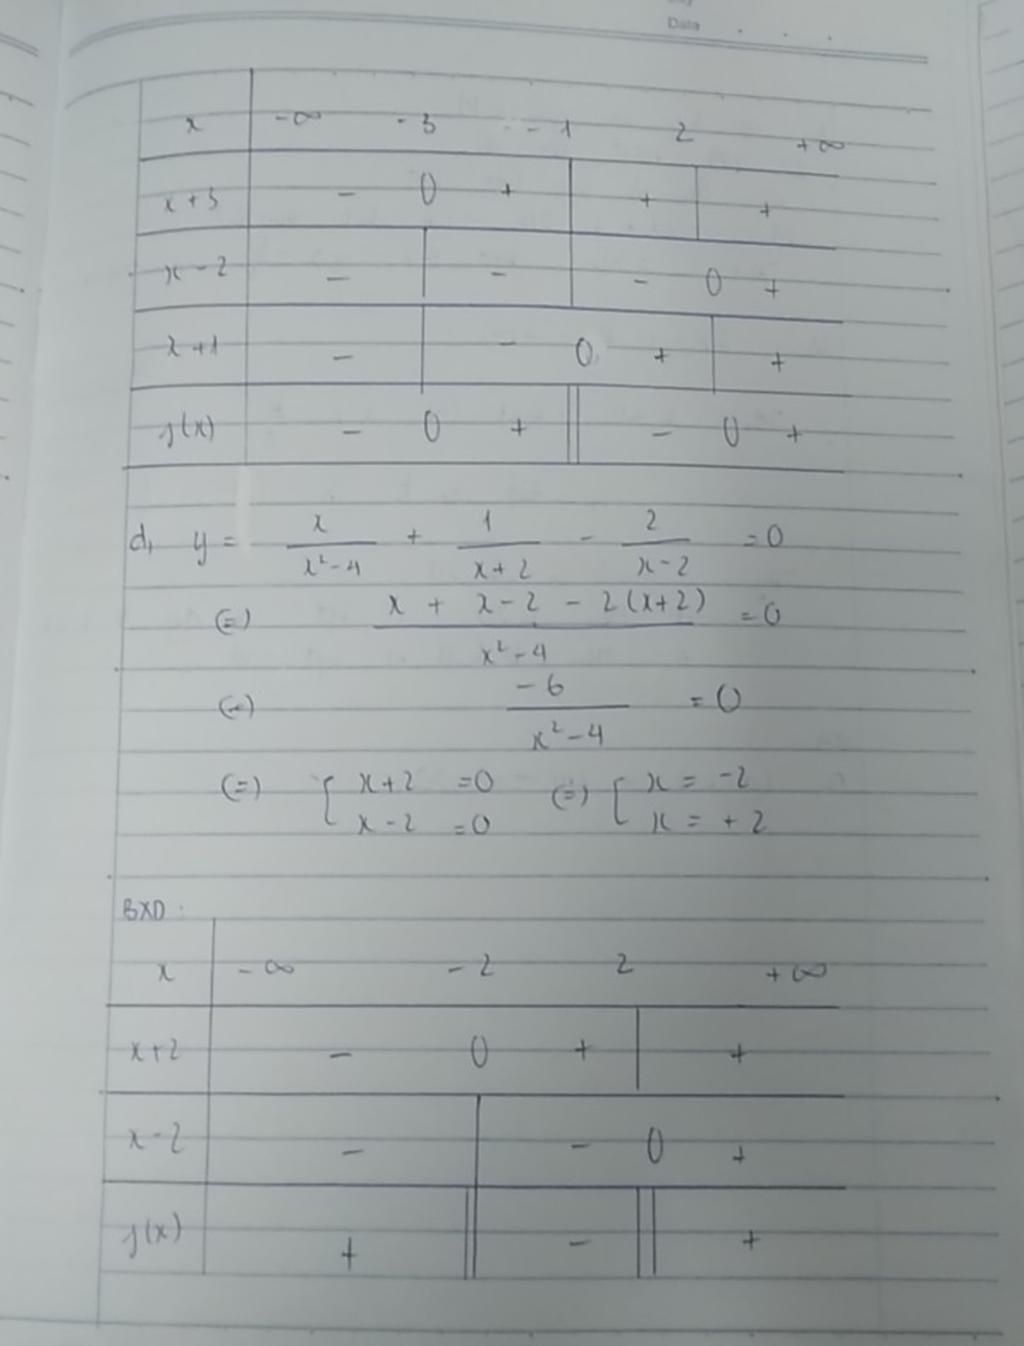 Date
x -∞ -3 -1 2 +∞
x+3 - 0 + + +
x-2 - - - 0 +
x+1 - - 0 + +
f(x) - 0 + || - 0 +
d, y = x/(x²-4) + 1/(x+2) - 2/(x-2) = 0
(=) (x + x-2 - 2(x+2))/(x²-4) = 0
(=) -6/(x²-4) = 0
(=) { x+2 = 0 (=) { x = -2
x-2 = 0 x = +2
BXD:
x -∞ -2 2 +∞
x+2 - 0 + +
x-2 - - 0 +
f(x) + || - || +